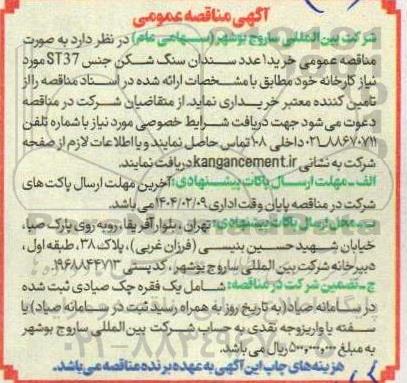 آگهی مناقصه عمومی
شرکت بین المللی ساروج بوشهر (سهامی عام) در نظر دارد به صورت
مناقصه عمومی خرید ۱ عدد سندان سنگ شکن جنس ST37 مورد
نیاز کارخانه خود مطابق با مشخصات ارائه شده در اسناد مناقصه را از
تامین کننده معتبر خریداری نماید. از متقاضیان شرکت در مناقصه
دعوت می شود جهت دریافت شرایط خصوصی مورد نیاز با شماره تلفن
۰۲۱-۸۸۶۷۰۷۱۱ داخلی ۱۰۸ تماس حاصل نمایند و یا اطلاعات لازم از صفحه
شرکت به نشانی kangancement.ir دریافت نمایند.
الف - مهلت ارسال پاکات پیشنهادی: آخرین مهلت ارسال پاکت های
شرکت در مناقصه پایان وقت اداری ۱۴۰۴/۰۲/۰۹ می باشد.
ب - محل ارسال پاکات پیشنهادی: تهران، بلوار آفریقا، روبه روی پارک صبا،
خیابان شهید حسین بنیسی (فرزان غربی)، پلاک ۳۸، طبقه اول،
دبیرخانه شرکت بین المللی ساروج بوشهر، کدپستی ۱۹۶۸۸۴۴۷۱۳.
ج - تضمین شرکت در مناقصه: شامل یک فقره چک صیادی ثبت شده
در سامانه صیاد (به تاریخ روز به همراه رسید ثبت در سامانه صیاد) یا
سفته یا واریز وجه نقدی به حساب شرکت بین المللی ساروج بوشهر
به مبلغ ۵۰۰,۰۰۰,۰۰۰ ریال می باشد.
هزینه های چاپ این آگهی به عهده برنده مناقصه می باشد.
۰۲۱-۸۸۳۴۹۶۷۰